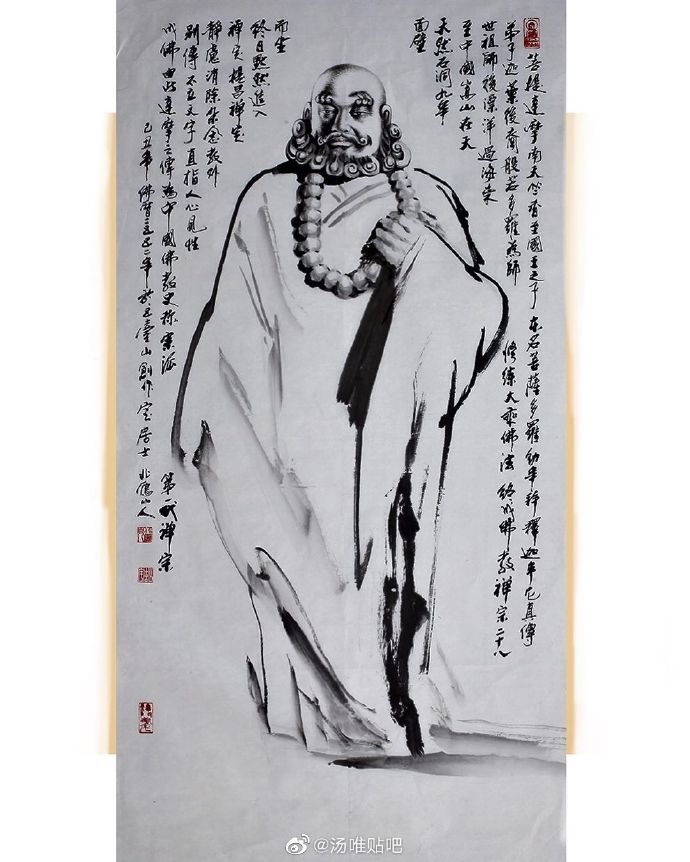 菩提達摩南天竺香至國王之子 本名菩薩多羅幼年拜釋迦牟尼真傳
弟子迦葉後裔般若多羅為師 修練大乘佛法 終成佛教禪宗二十八
世祖師後漂洋過海來
至中國嵩山在天
天然石洞九年
面壁
而坐
終日默然進入
禪定提昌禪定
靜慮消除杂念教外
別傳不立文字直指人心見性
成佛由此達摩之傳為中國佛教史称宗派 第一代禪宗
己丑年佛曆二年於五臺山創作室居士 北山人
@汤唯贴吧